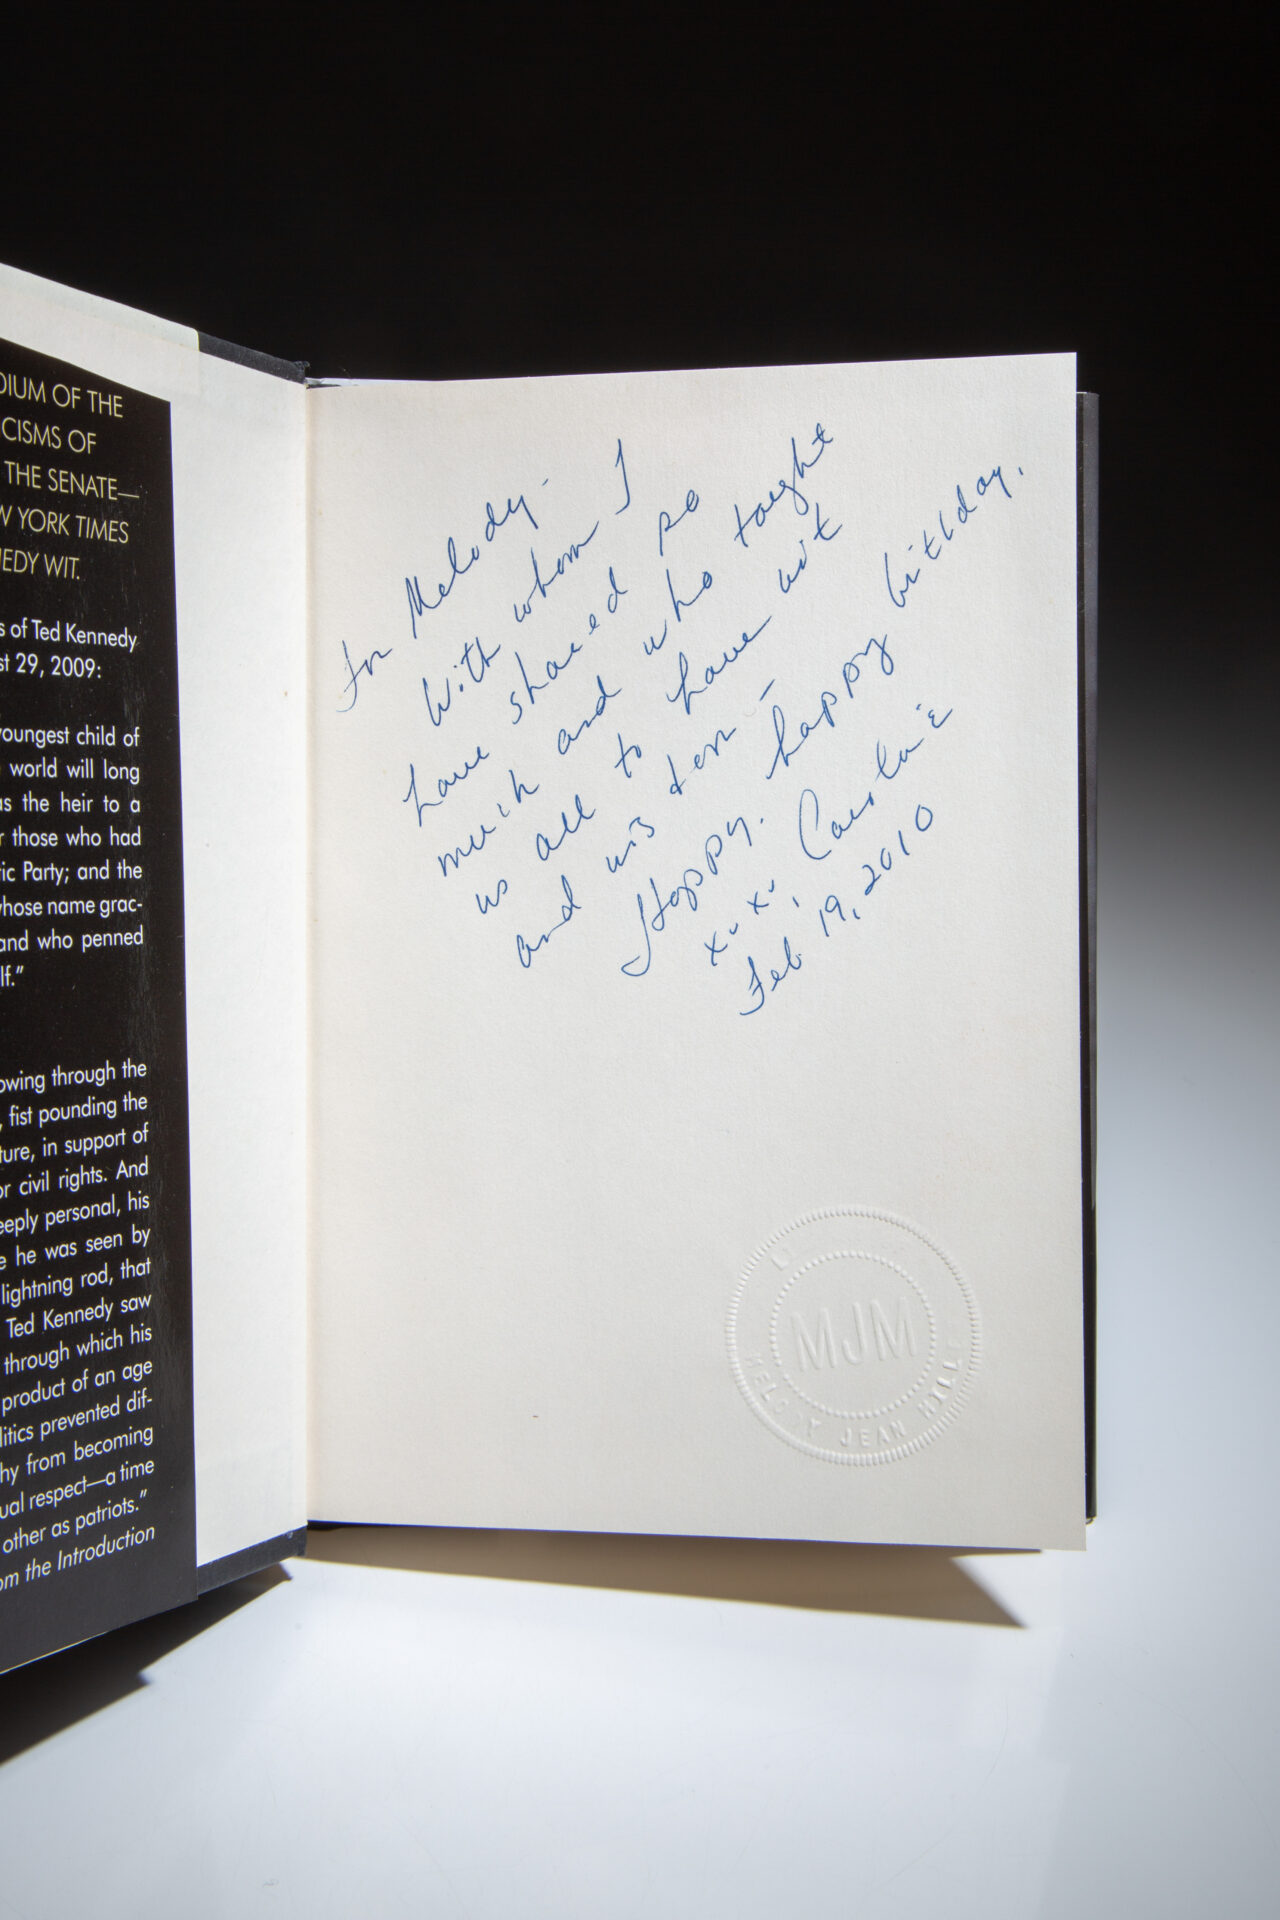 DIUM OF THE
CISMS OF
THE SENATE—
W YORK TIMES
NEDY WIT.
s of Ted Kennedy
st 29, 2009:
youngest child of
world will long
as the heir to a
r those who had
tic Party; and the
whose name grac-
and who penned
lf.”
owing through the
, fist pounding the
ture, in support of
or civil rights. And
eeply personal, his
e he was seen by
lightning rod, that
Ted Kennedy saw
through which his
product of an age
litics prevented dif-
hy from becoming
ual respect—a time
other as patriots.”
om the Introduction
For Melody-
With whom I
have shared so
much and who taught
us all to have wit
and wisdom –
Happy. happy birthday.
xo xo,
Feb 19, 2010
MJM
JEAN